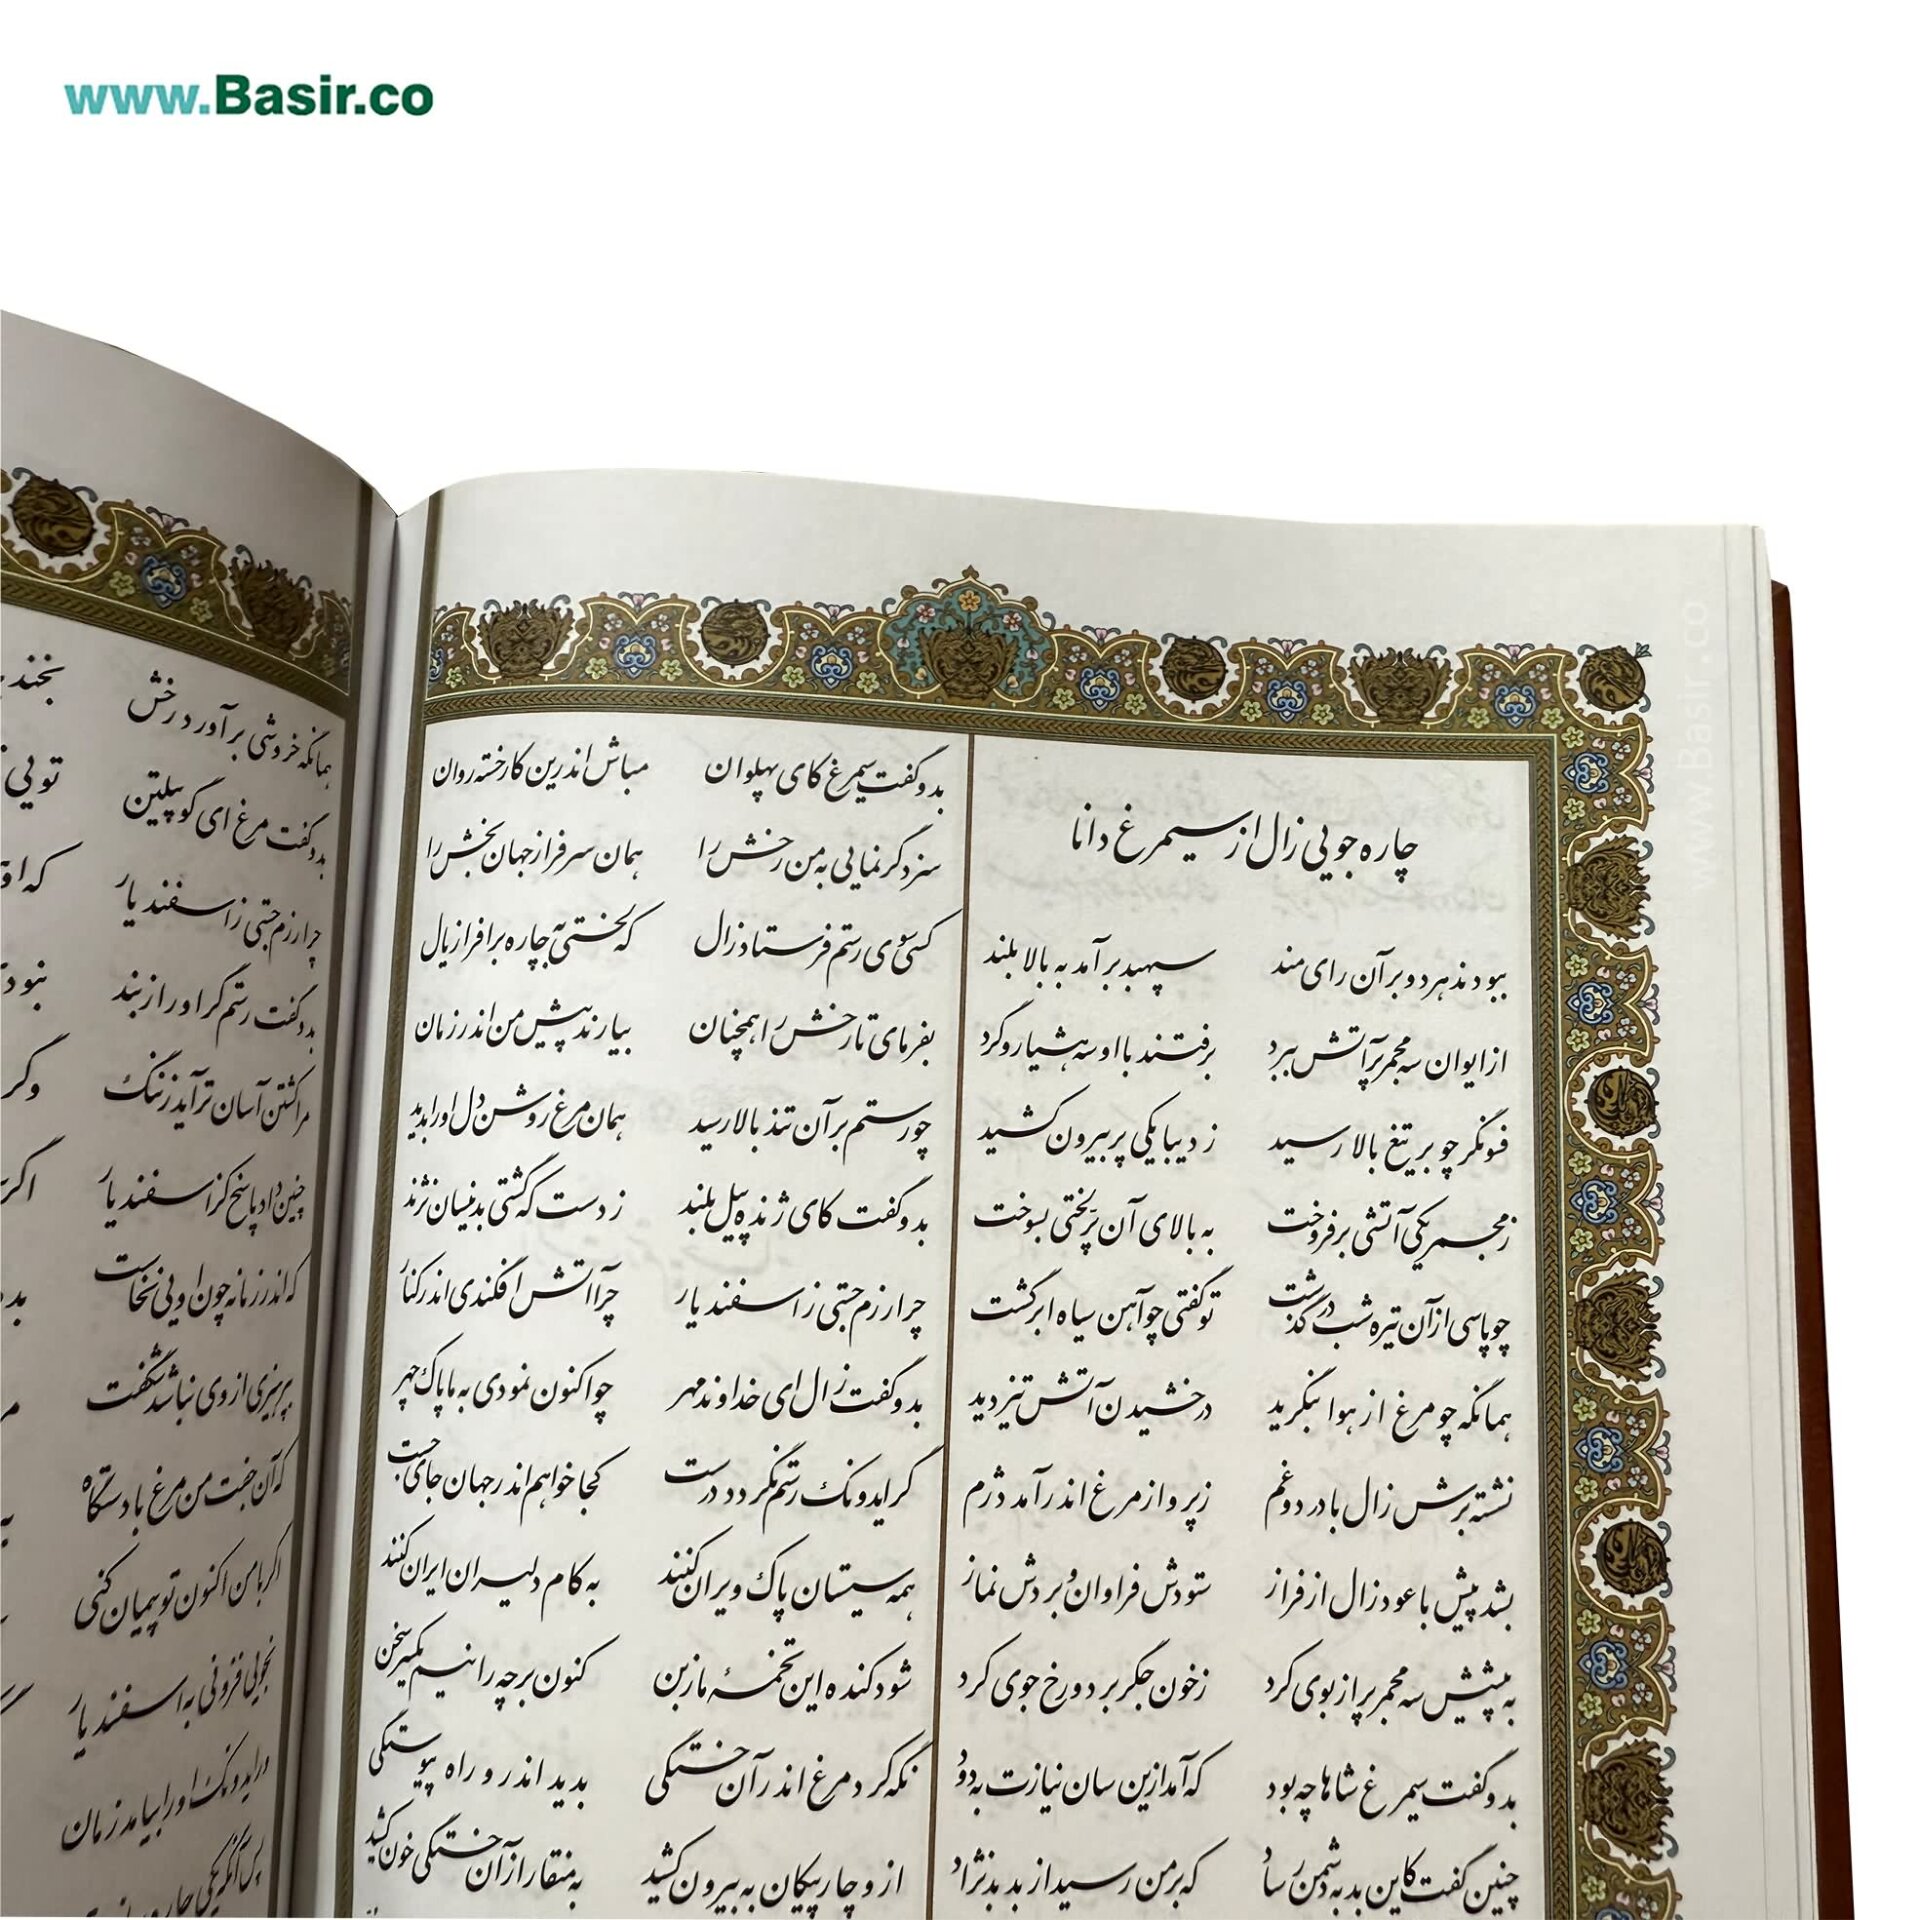 www.Basir.co
چاره جویی زال از سیمرغ دانا
ببودند هر دو بر آن رای مند سپهبد برآمد به بالا بلند
از ایوان سه مجمر پر آتش ببرد برفتند با او سه هشیار و گرد
فسونگر چو بر تیغ بالا رسید ز دیبا یکی پر بیرون کشید
ز مجمر یکی آتشی برفروخت به بالای آن پر لختی بسوخت
چو پاسی از آن تیره شب درگذشت تو گفتی چو آهن سیاه ابر گشت
همانگه چو مرغ از هوا بنگرید درخشیدن آتش تیز دید
نشسته برش زال با درد و غم ز پرواز مرغ اندر آمد دژم
بشد پیش با عود زال از فراز ستودش فراوان و بردش نماز
به پیشش سه مجمر پر از بوی کرد ز خون جگر بر دو رخ جوی کرد
بدو گفت سیمرغ شاها چه بود که آمد ازین سان نیازت به دود
چنین گفت کاین بد به دشمن رساد که بر من رسید از بد بدنژاد
بدو گفت سیمرغ کای پهلوان مباش اندرین کار خسته روان
سزد گر نمایی به من رخش را همان سرفراز جهان بخش را
کسی سوی رستم فرستاد زال که لختی به چاره برافراز یال
بفرمای تا رخش را همچنان بیارند پیش من اندر زمان
چو رستم بر آن تند بالا رسید همان مرغ روشن دل او را بدید
بدو گفت کای ژنده پیل بلند ز دست که گشتی بدینسان نژند
چرا رزم جستی ز اسفندیار چرا آتش افکندی اندر کنار
بدو گفت زال ای خداوند مهر چو اکنون نمودی به ما پاک چهر
گر ایدونک رستم نگردد درست کجا خواهم اندر جهان جای جست
همه سیستان پاک ویران کنند به کام دلیران ایران کنند
شود کنده این تخمهٔ ما ز بن کنون بر چه رانیم یکسر سخن
نگه کرد مرغ اندر آن خستگی بدید اندرو راه پیوستگی
ازو چار پیکان به بیرون کشید به منقار از آن خستگی خون کشید
همانگه خروشی برآورد رخش بخند
بدو گفت مرغ ای گو پیلتن تویی
چرا رزم جستی ز اسفندیار که او
بدو گفت رستم گر او را ز بند نبود
مرا کشتن آسان تر آید ز ننگ وگر
چنین داد پاسخ کز اسفندیار اگر
که اندر زمانه چون اویی نخاست
بپرهیزی از وی نباشد شگفت
که آن جفت من مرغ با دستگاه
اگر با من اکنون تو پیمان کنی
نجویی فزونی به اسفندیار
ور ایدونک او را بیامد زمان